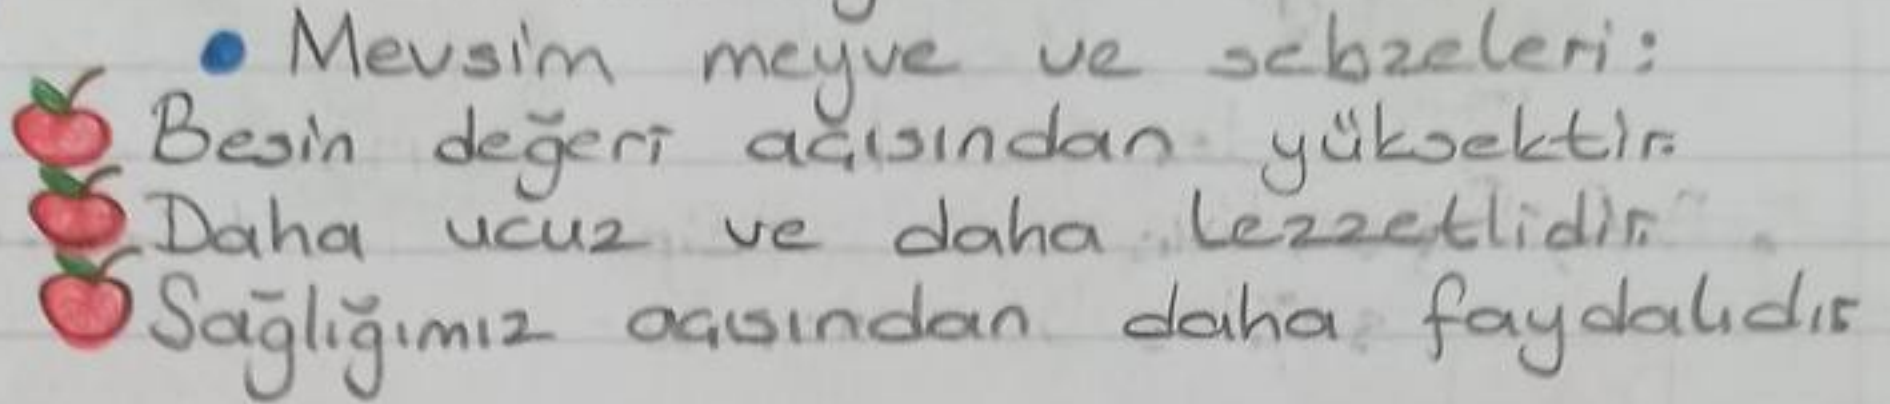 • Mevsim meyve ve sebzeleri:
Besin değeri açısından yüksektir.
Daha ucuz ve daha lezzetlidir.
Sağlığımız açısından daha faydalıdır